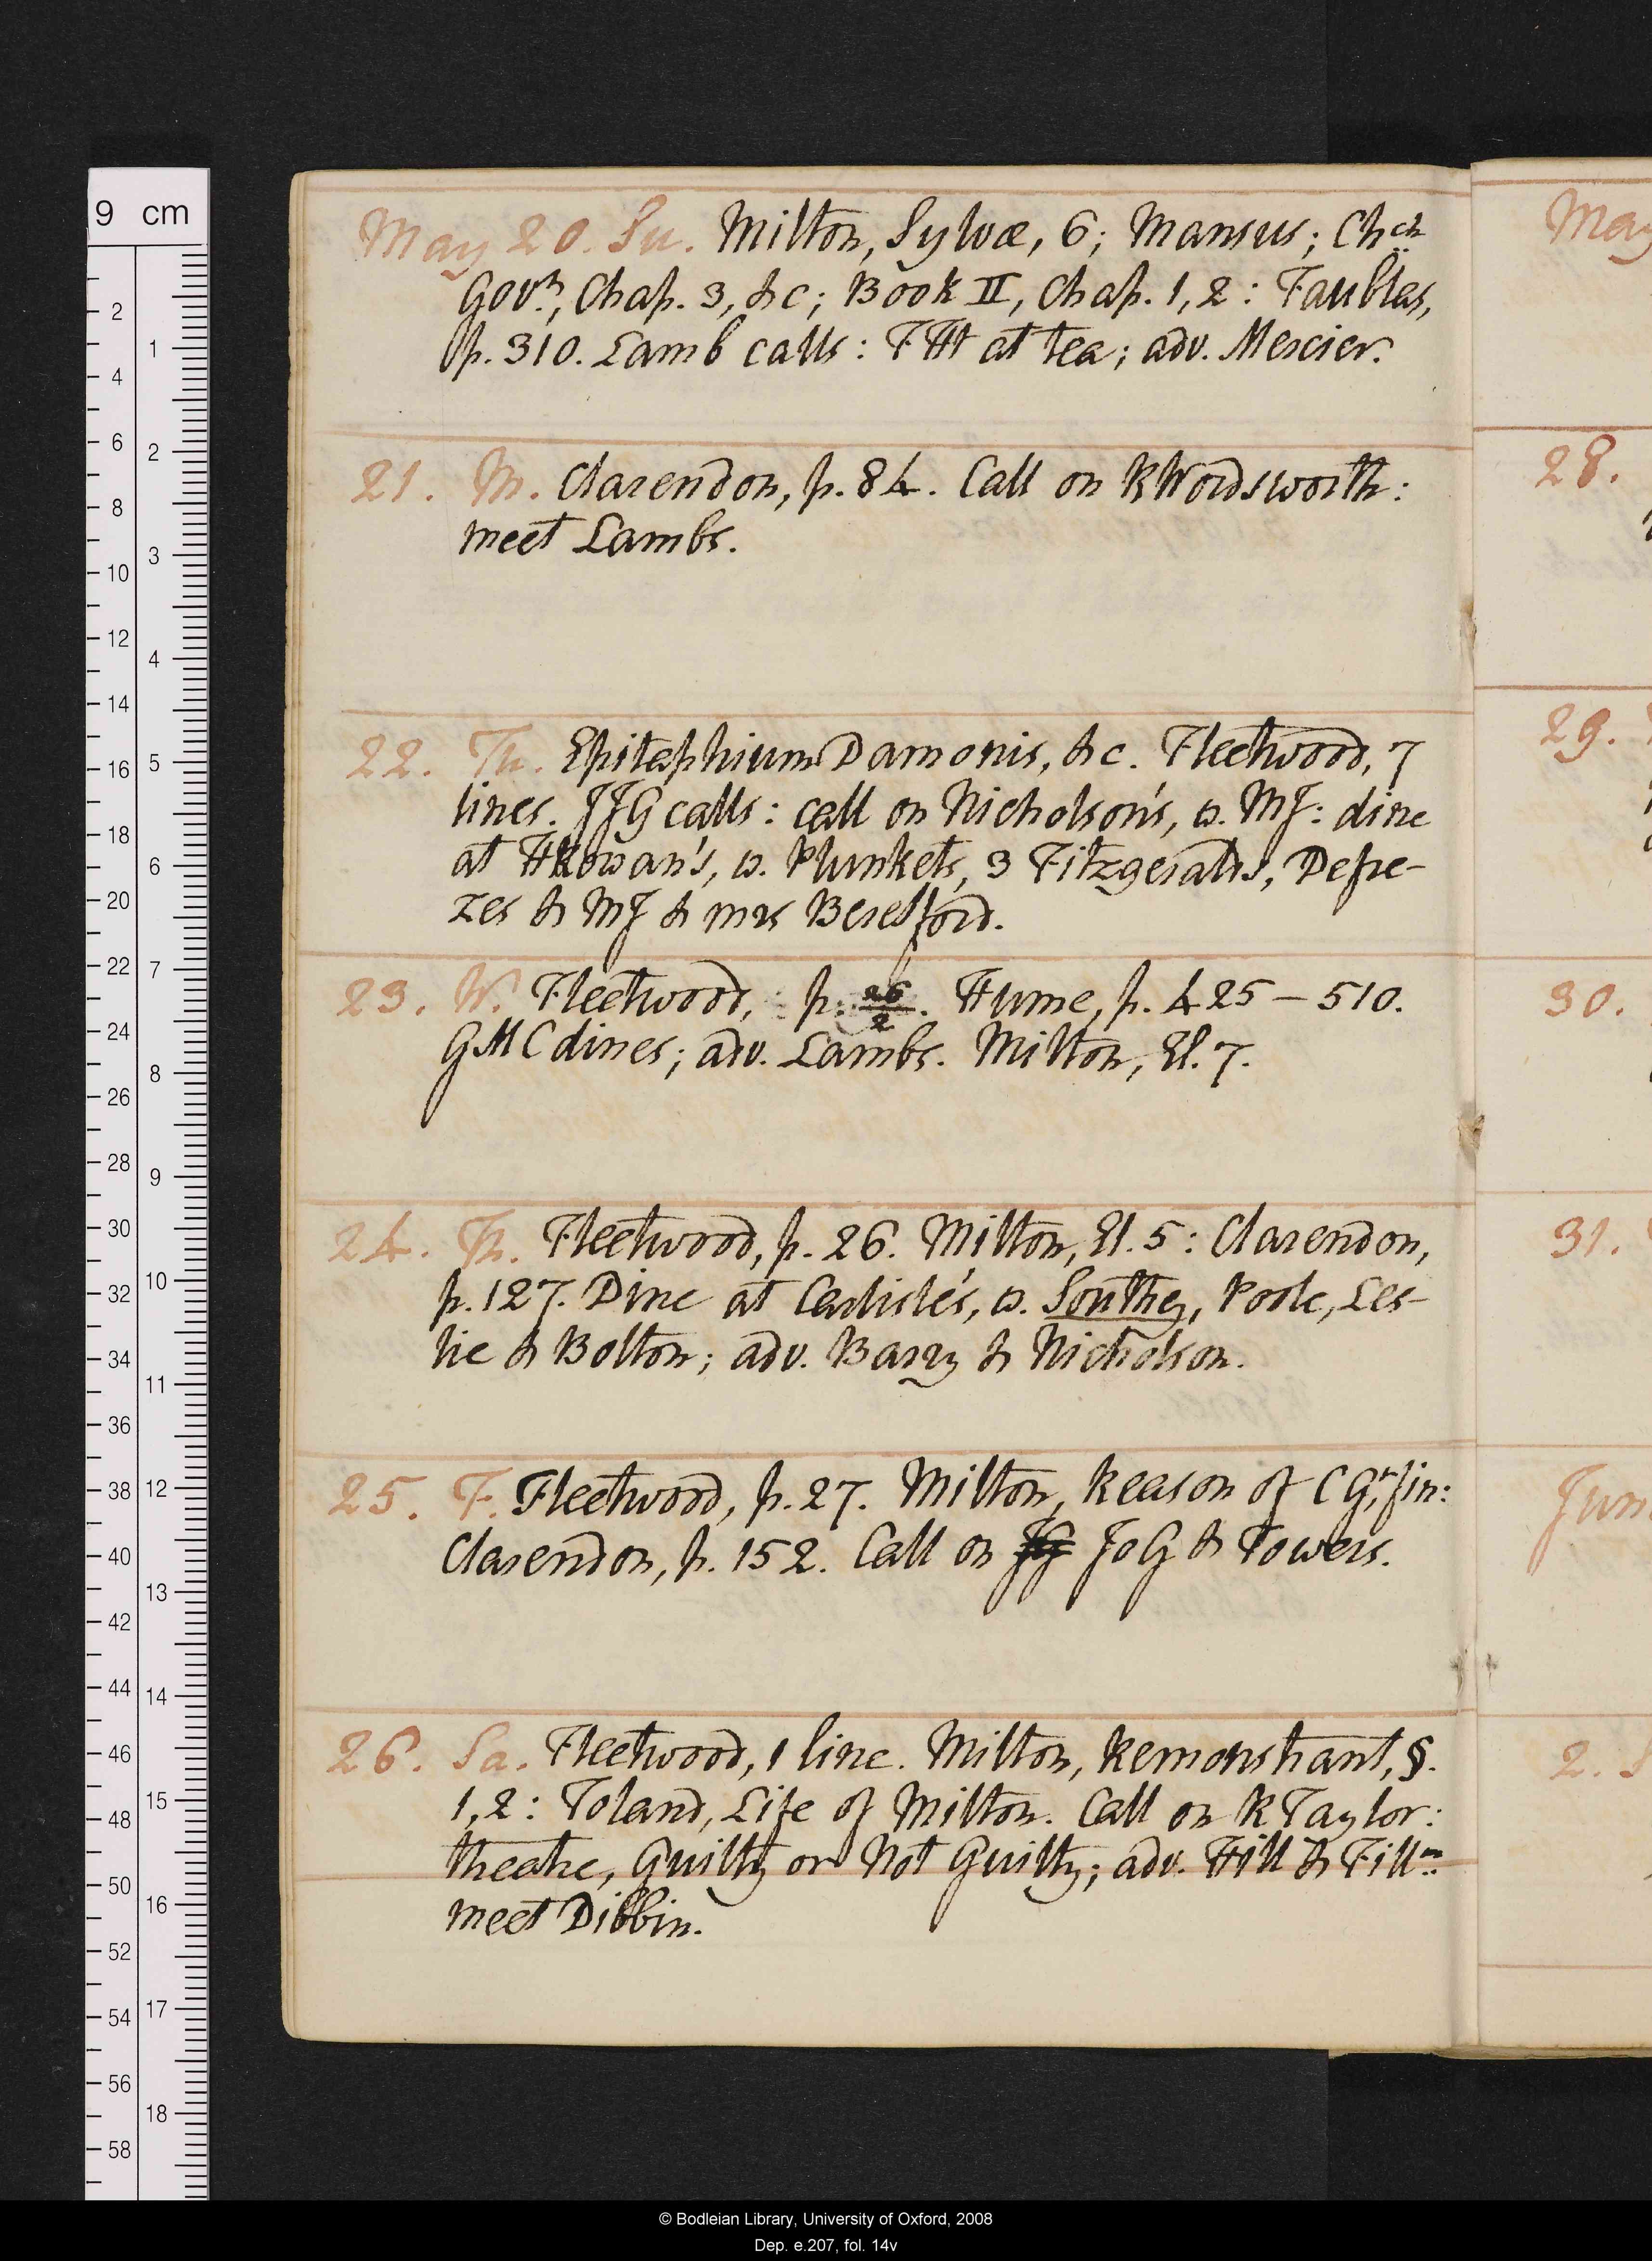 9 cm
May 20. Su. Milton, Sylvæ, 6; Mansus; Chch
Govt, Chap. 3, &c; Book II, Chap. 1, 2: Faublas,
p. 310. Lamb calls: THt at tea; adv. Mercier.
21. M. Clarendon, p. 84. Call on RWordsworth:
meet Lambs.
22. Tu. Epitaphium Damonis, &c. Fleetwood, 7
lines. JJG calls: call on Nicholson's, w. MJ: dine
at HRowan's, w. Plunkets, 3 Fitzgeralds, Depre-
zes & MJ & mrs Beresford.
23. W. Fleetwood, p. 26/2. Hume, p. 425 – 510.
GMC dines; adv. Lambs. Milton, El. 7.
24. Th. Fleetwood, p. 26. Milton, El. 5: Clarendon,
p. 127. Dine at Carlisle's, w. Southey, Poole, Les-
lie & Bolton; adv. Barry & Nicholson.
25. F. Fleetwood, p. 27. Milton, Reason of C Gt, fin:
Clarendon, p. 152. Call on JG JoG & Towers.
26. Sa. Fleetwood, 1 line. Milton, Remonstrant, §.
1, 2: Toland, Life of Milton. Call on RTaylor:
theatre, Guilty or Not Guilty; adv. Hill & Fillm
meet Dibbin.
May
28.
29.
30.
31.
Jun
2. S
2
4
6
8
10
12
14
16
18
20
22
24
26
28
30
32
34
36
38
40
42
44
46
48
50
52
54
56
58
1
2
3
4
5
6
7
8
9
10
11
12
13
14
15
16
17
18
© Bodleian Library, University of Oxford, 2008
Dep. e.207, fol. 14v